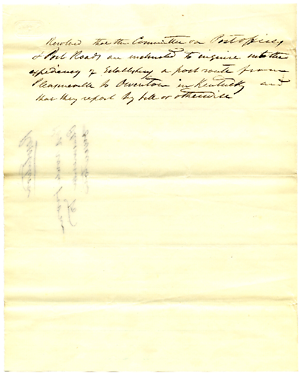 Resolved that the Committee on Post offices
& Post Roads are instructed to inquire into the
expediency of Establishing a post route from
to in Kentucky and
that they report by bill or otherwise